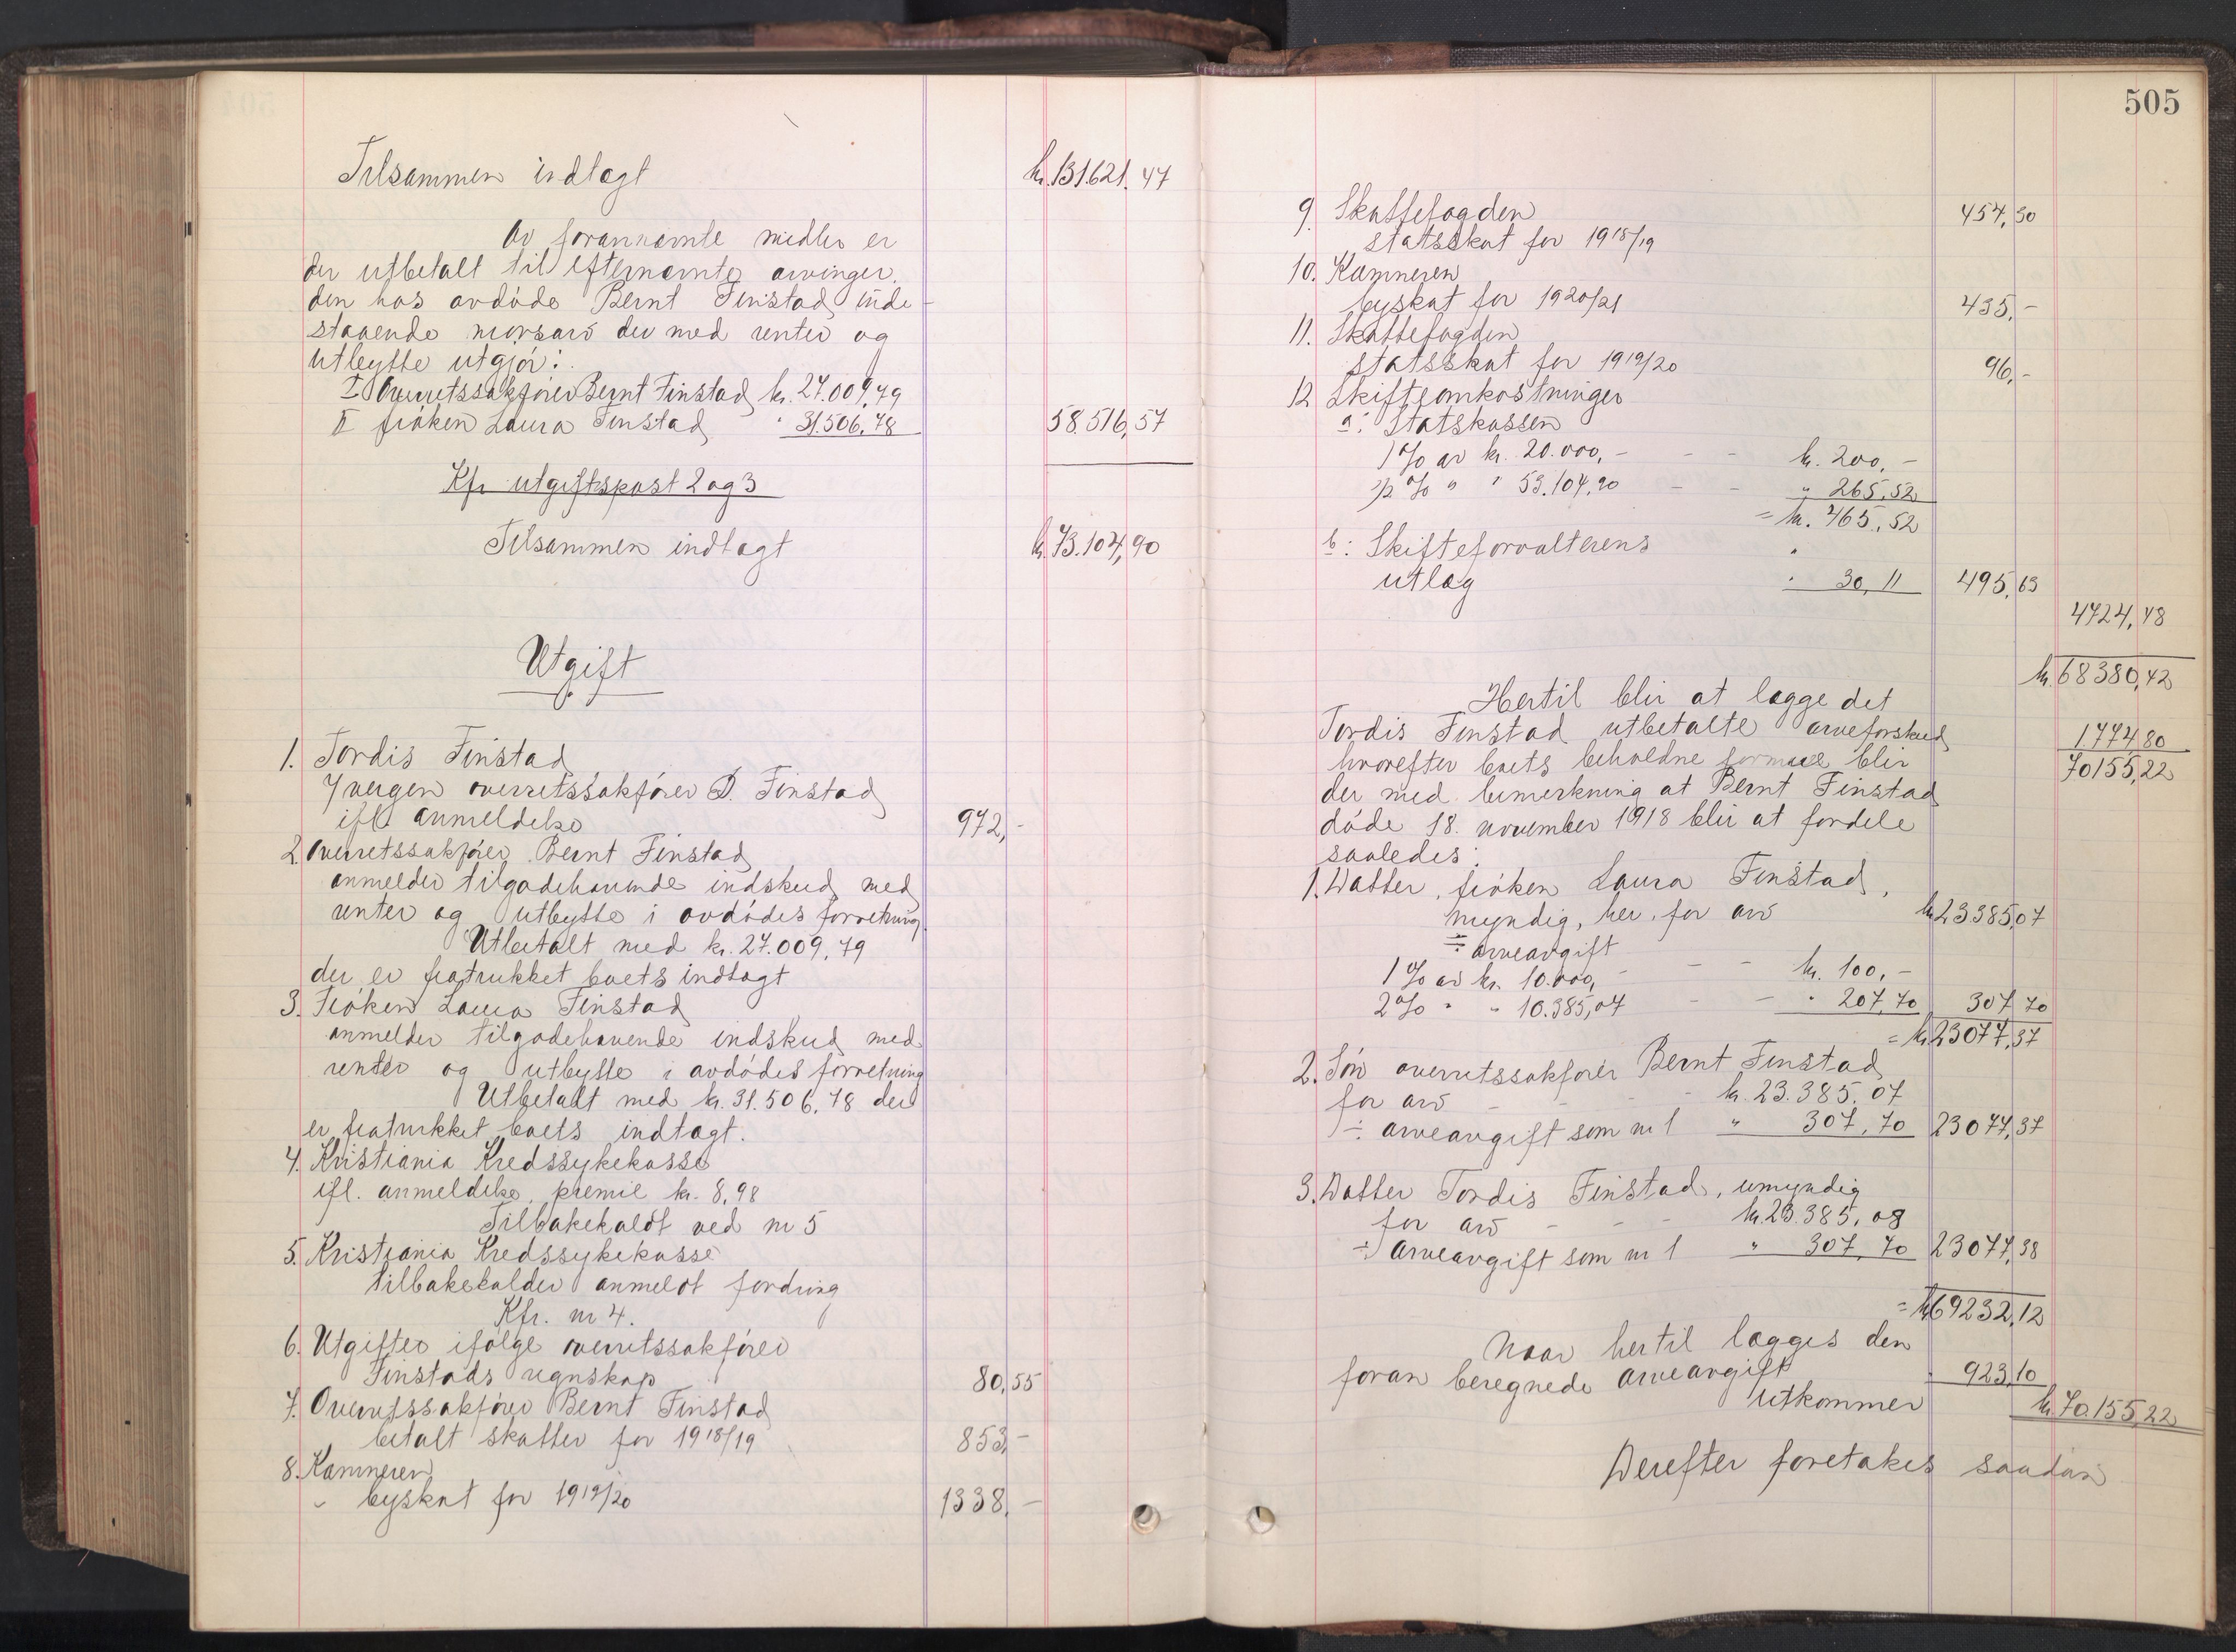 Tilsammen indtægt kr. 131.621.47
Av forannævnte midler er
der utbetalt til efternævnte arvinger
den hos avdöde Bernt Finstad inde-
staaende morsarv der med renter og
utbytte utgjör:
I Overretssakförer Bernt Finstad kr. 27.009,79
II fröken Laura Finstad " 31.506,78 58.516,57
Kfr utgiftspost 2 og 3
Tilsammen indtægt kr. 73.104,90
Utgift
1. Tordis Finstad
v/ vergen overretssakförer B. Finstad
ifl. anmeldelse 972,-
2. Overretssakförer Bernt Finstad
anmelder tilgodehavende indskud med
renter og utbytte i avdödes forretning
Utbetalt med kr. 27.009,79
der er fratrukket boets indtægt
3. Fröken Laura Finstad
anmelder tilgodehavende indskud med
renter og utbytte i avdödes forretning
Utbetalt med kr. 31.506,78 der
er fratrukket boets indtægt.
4. Kristiania Kredssykekasse
ifl. anmeldelse, premie kr. 8,98
Tilbakekaldt ved nr 5
5. Kristiania Kredssykekasse
tilbakekalder anmeldt fordring
Kfr. nr 4.
6. Utgifter ifölge overretssakförer
Finstads regnskap 80,55
7. Overretssakförer Bernt Finstad
betalt skatter for 1918/19 853,-
8. Kæmneren
byskat for 1919/20 1338,-
505
9. Skattefogden 454,30
statsskat for 1918/19
10. Kæmneren
byskat for 1920/21 435,-
11. Skattefogden
statsskat for 1919/20 96,-
12 Skifteomkostninger
a: Statskassen
1% av kr. 20.000,- - - kr. 200,-
1/2 % " " 53.104,90 - - " 265,52
= kr. 465,52
b: Skifteforvalterens "
utlæg " 30,11 495,63
4724,48
kr. 68380,42
Hertil blir at lægge det
Tordis Finstad utbetalte arveforskud 1774,80
hvorefter boets beholdne formue blir 70155,22
der med bemerkning at Bernt Finstad
döde 18. november 1918 blir at fordele
saaledes:
1. Datter, fröken Laura Finstad,
myndig, her, for arv kr. 23385,07
÷ arveavgift
1% av kr. 10.000,- - - kr. 100,-
2% " " 10.385,07 - - " 207,70 307 70
= kr 23077,37
2. Sön overretssakförer Bernt Finstad
for arv - - - - kr. 23.385.07
÷ arveavgift som nr 1 " 307,70 23077,37
3. Datter Tordis Finstad, umyndig
for arv - - - kr. 23.385,08
÷ arveavgift som nr 1 " 307,70 23077,38
= kr 69232,12
Naar hertil lægges den
foran beregnede arveavgift " 923,10
utkommer kr. 70.155,22
Derefter foretakes saadan